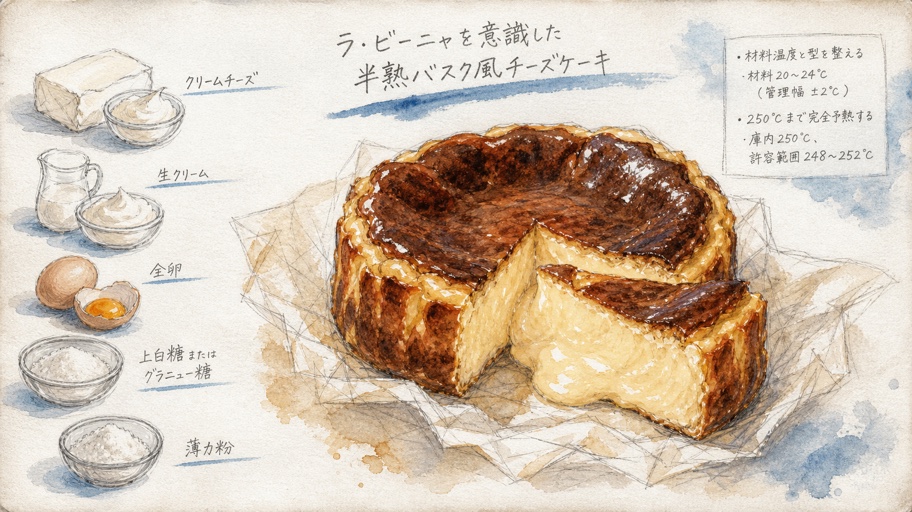 ラ・ビーニャを意識した
半熟バスク風チーズケーキ
クリームチーズ
生クリーム
全卵
上白糖または
グラニュー糖
薄力粉
・材料温度と型を整える
・材料 20〜24℃
(管理幅 ±2℃)
・250℃まで完全予熱する
・庫内 250℃、
許容範囲 248〜252℃